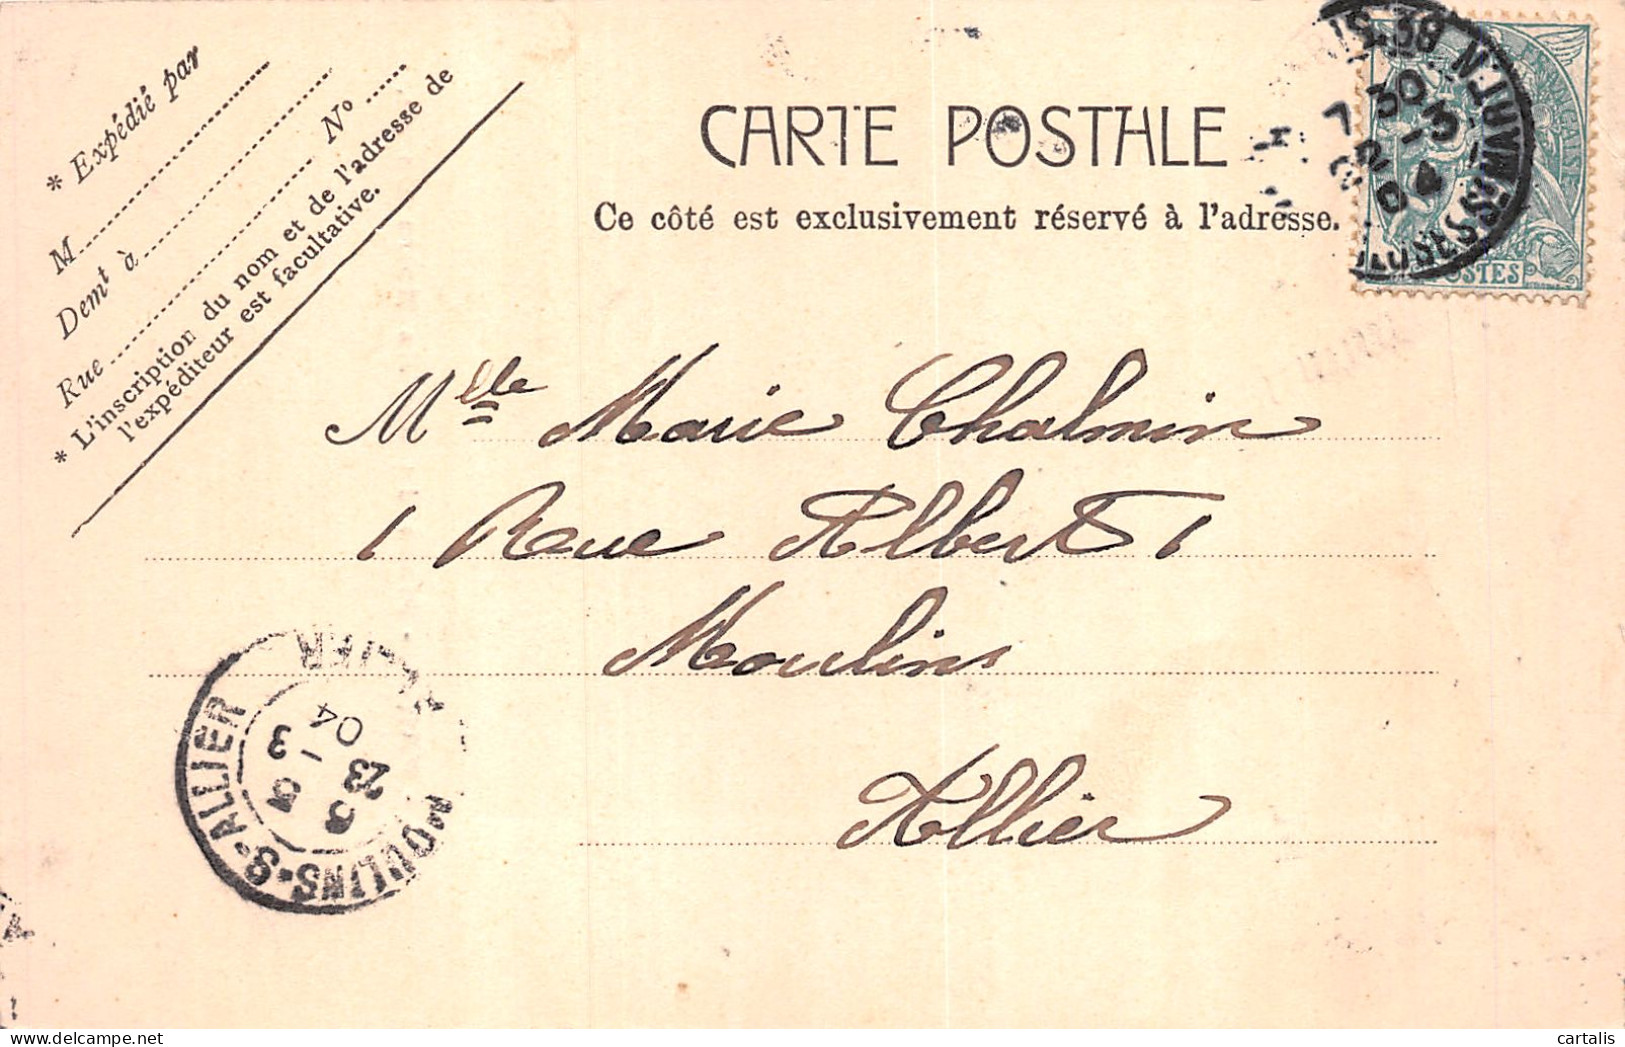 * Expédié par
M
Demt à
Rue Nº
* L'inscription du nom et de l'adresse de
l'expéditeur est facultative.
CARTE POSTALE
Ce côté est exclusivement réservé à l'adresse.
7 30
2 -3
04
POSTES
Mlle Marie Chalmin
1 Rue Albert 1
Moulins
Allier
MOULINS-S-ALLIER
ALLIER
23
-3
04
cartalis